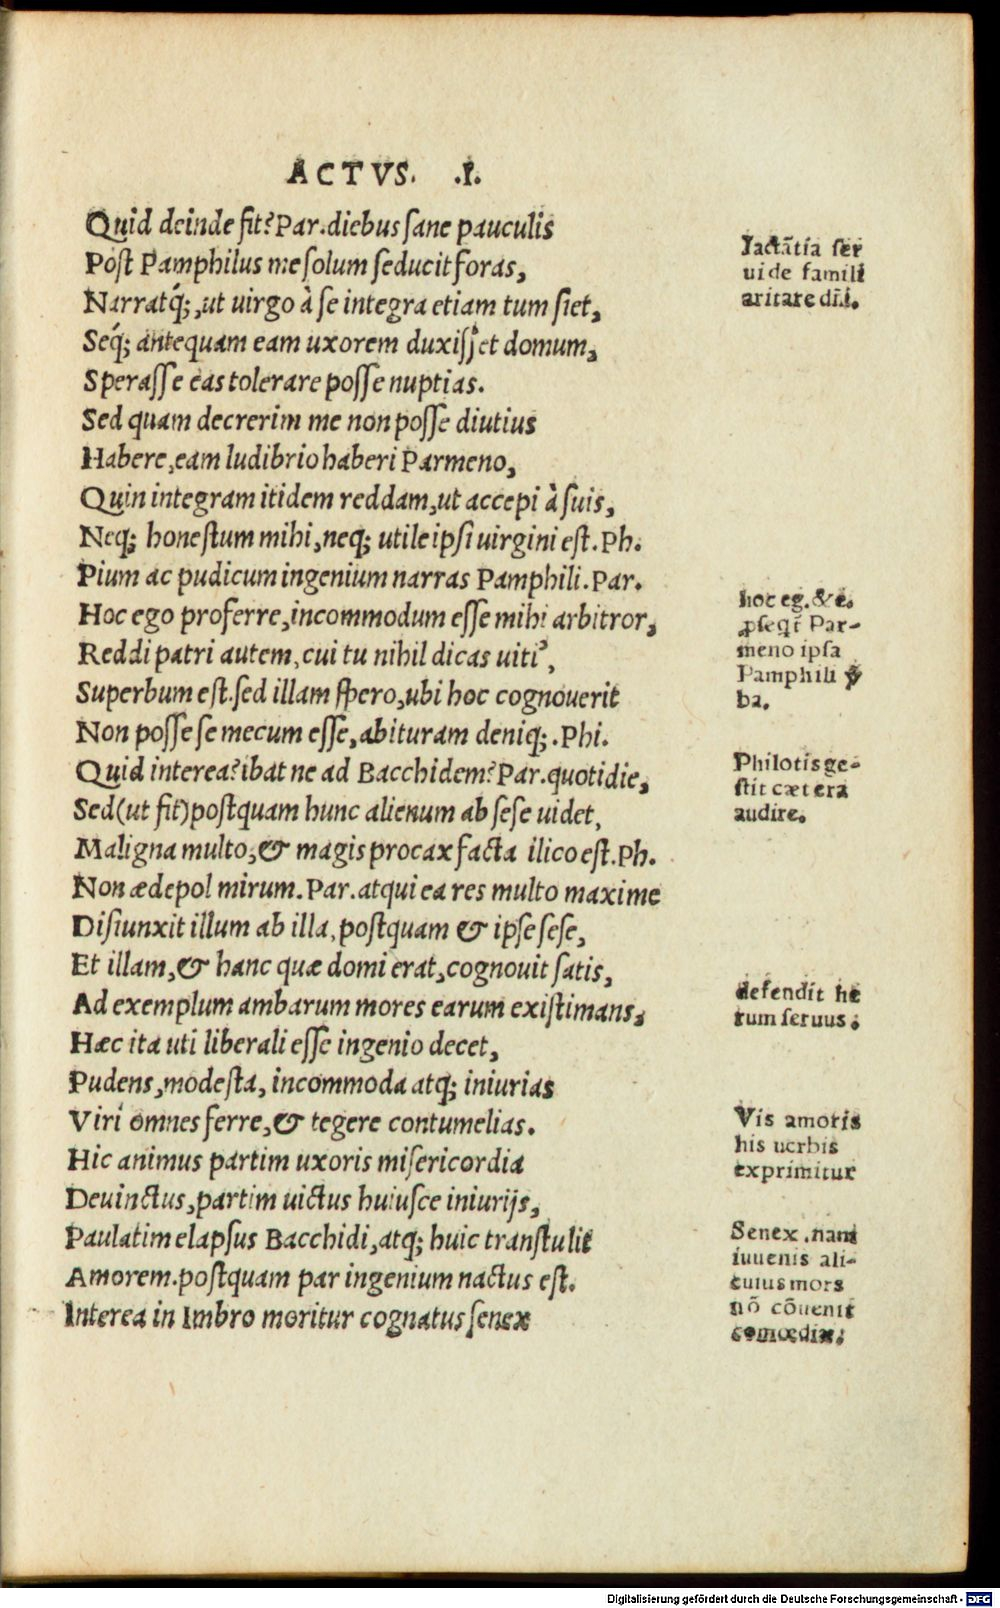 ACTVS. .I.
Quid deinde fit? Par. diebus sane pauculis
Post Pamphilus me solum seducit foras,
Narratq́;, ut uirgo à se integra etiam tum siet,
Seq́; antequam eam uxorem duxisset domum,
Sperasse eas tolerare posse nuptias.
Sed quam decrerim me non posse diutius
Habere, eam ludibrio haberi Parmeno,
Quin integram itidem reddam, ut accepi à suis,
Neq; honestum mihi, neq; utile ipsi uirgini est. Ph.
Pium ac pudicum ingenium narras Pamphili. Par.
Hoc ego proferre, incommodum esse mihi arbitror,
Reddi patri autem, cui tu nihil dicas uitiꝰ,
Superbum est. sed illam spero, ubi hoc cognouerit
Non posse se mecum esse, abituram deniq;. Phi.
Quid interea? ibat ne ad Bacchidem? Par. quotidie,
Sed (ut fit) postquam hunc alienum ab sese uidet,
Maligna multo, & magis procax facta ilico est. Ph.
Non ædepol mirum. Par. atqui ea res multo maxime
Disiunxit illum ab illa, postquam & ipse sese,
Et illam, & hanc quæ domi erat, cognouit satis,
Ad exemplum ambarum mores earum existimans,
Hæc ita uti liberali esse ingenio decet,
Pudens, modesta, incommoda atq; iniurias
Viri omnes ferre, & tegere contumelias.
Hic animus partim uxoris misericordia
Deuinctus, partim uictus huiusce iniurijs,
Paulatim elapsus Bacchidi, atq; huic transtulit
Amorem. postquam par ingenium nactus est.
Interea in Imbro moritur cognatus senex
Iactātia ser
ui de famili
aritate dn̄i.
hoc eg. &c.
ꝓseqt̃ Par-
meno ipsa
Pamphili
ba.
Philotis ge-
stit cætera
audire.
defendit he
rum seruus;
Vis amoris
his uerbis
exprimitur
Senex. nam
iuuenis ali-
cuius mors
nō cōuenit
comœdiæ;
Digitalisierung gefördert durch die Deutsche Forschungsgemeinschaft - DFG